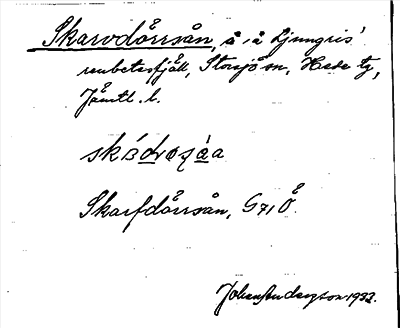 Skarvdörrsån, å i å Ljungris'
renbetesfjäll, Storsjö sn, Hede tg,
Jämtl. l.
Skarfdörrsån, G71 Ö.
Johan Andersson 1933.